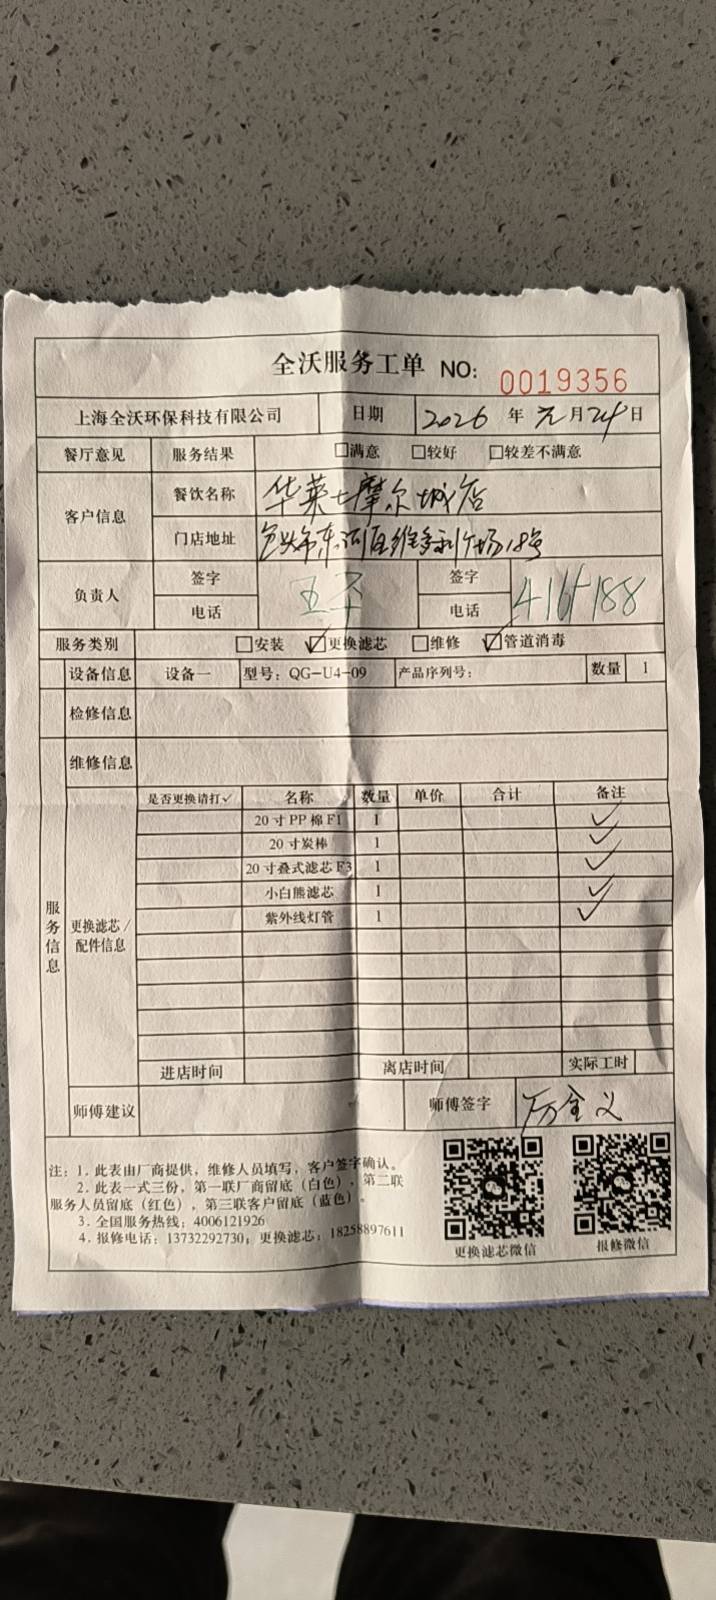 全沃服务工单 NO: 0019356
上海全沃环保科技有限公司 日期 2026 年 元 月 24 日
餐厅意见 服务结果 □满意 □较好 □较差不满意
客户信息 餐饮名称 华莱士摩尔城店
门店地址 包头市东河区维多利广场18号
负责人 签字 签字
电话 电话 4165188
服务类别 □安装 ☑更换滤芯 □维修 ☑管道消毒
设备信息 设备一 型号: QG-U4-09 产品序列号: 数量 1
检修信息
维修信息
服务信息
更换滤芯/配件信息
是否更换请打✓ 名称 数量 单价 合计 备注
20寸PP棉F1 1 ✓
20寸炭棒 1 ✓
20寸叠式滤芯F3 1 ✓
小白熊滤芯 1 ✓
紫外线灯管 1 ✓
进店时间 离店时间 实际工时
师傅建议 师傅签字 厉金义
注: 1. 此表由厂商提供, 维修人员填写, 客户签字确认。
2. 此表一式三份, 第一联厂商留底 (白色), 第二联
服务人员留底 (红色), 第三联客户留底 (蓝色)。
3. 全国服务热线: 4006121926
4. 报修电话: 13732292730; 更换滤芯: 18258897611
更换滤芯微信 报修微信